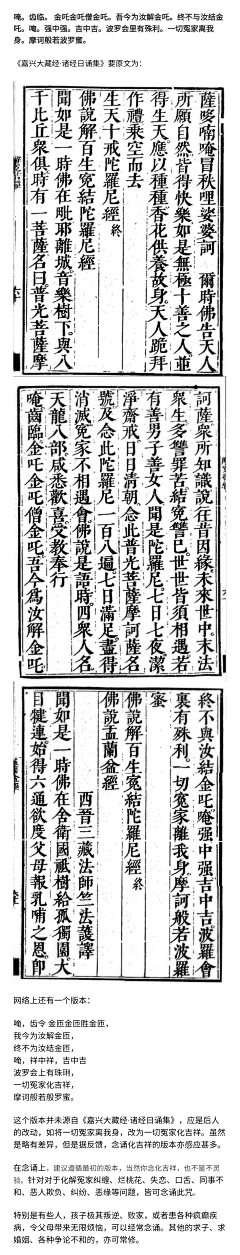 唵。齿临。金吒金吒僧金吒。吾今为汝解金吒。终不与汝结金
吒。唵。强中强。吉中吉。波罗会里有殊利。一切冤家离我
身。摩诃般若波罗蜜。
《嘉兴大藏经·诸经日诵集》要原文为：
薩哆喃唵冒秩哩娑婆訶　爾時佛告天人
所願自然皆得快樂如是無極十善之人並
得生天應以種種香花供養故身天人跪拜
作禮乘空而去
生天十戒陀羅尼經 終
佛說解百生冤結陀羅尼經
聞如是一時佛在毗耶離城音樂樹下與八
千比丘衆俱時有一菩薩名曰普光菩薩摩
訶薩衆所知識說往昔因緣未來世中末法
衆生多讐罪苦結冤讐已世世皆須相遇若
有善男子善女人聞是陀羅尼七日七夜潔
淨齋戒日日清朝念此普光菩薩摩訶薩名
號及念此陀羅尼一百八遍七日滿足盡得
消滅冤家不相遇會佛說是語時四衆人名
天龍八部咸悉歡喜受教奉行
唵齒臨金吒金吒僧金吒吾今爲汝解金吒
終不與汝結金吒唵强中强吉中吉波羅會
裏有殊利一切冤家離我身摩訶般若波羅
蜜
佛說解百生冤結陀羅尼經 終
佛說盂蘭盆經
西晉三藏法師竺法護譯
聞如是一時佛在舍衛國祗樹給孤獨園大
目犍連始得六通欲度父母報乳哺之恩卽
网络上还有一个版本：
唵，齿令 金匝金匝胜金匝，
我今为汝解金匝，
终不为汝结金匝，
唵，祥中祥，吉中吉
波罗会上有珠琍，
一切冤家化吉祥，
摩诃般若般罗蜜。
这个版本并未源自《嘉兴大藏经·诸经日诵集》，应是后人
的改动，如将一切冤家离我身，改为一切冤家化吉祥。虽然
是略有差异，但是据反馈，念诵化吉祥的版本亦感应甚多。
在念诵上，建议遵循最初的版本，当然你念化吉祥，也不是不灵
验。针对对于化解冤家纠缠、烂桃花、失恋、口舌、同事不
和、恶人欺负、纠纷、恶缘等问题，皆可念诵此咒。
特别是有些人，孩子极其叛逆、败家，或者患各种疯癫疾
病，令父母带来无限烦恼，可以经常念诵。其他的求子、求
婚姻、各种争论不和的，亦可常修。